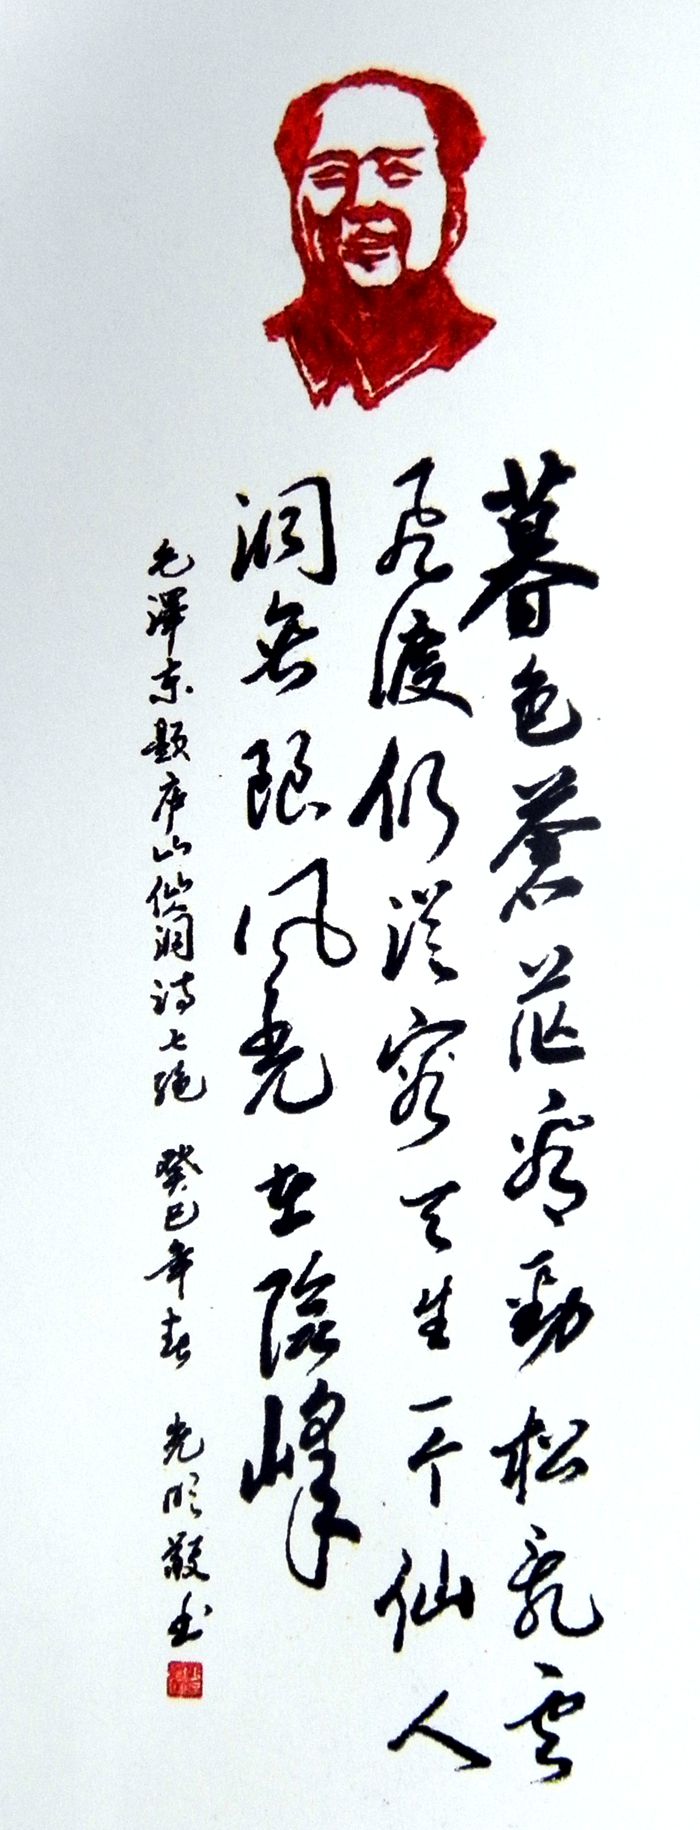 暮色蒼茫看勁松乱雲
飛渡仍從容天生一个仙人
洞無限风光在險峰
毛澤东题庐山仙洞诗七绝 癸巳年春 光明敬书